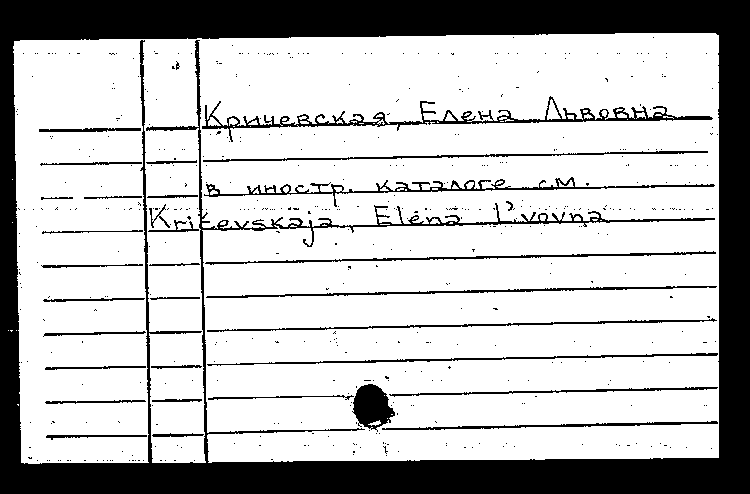 Кричевская, Елена Львовна
в иностр. каталоге см.
Kričevskaja, Elena L'vovna